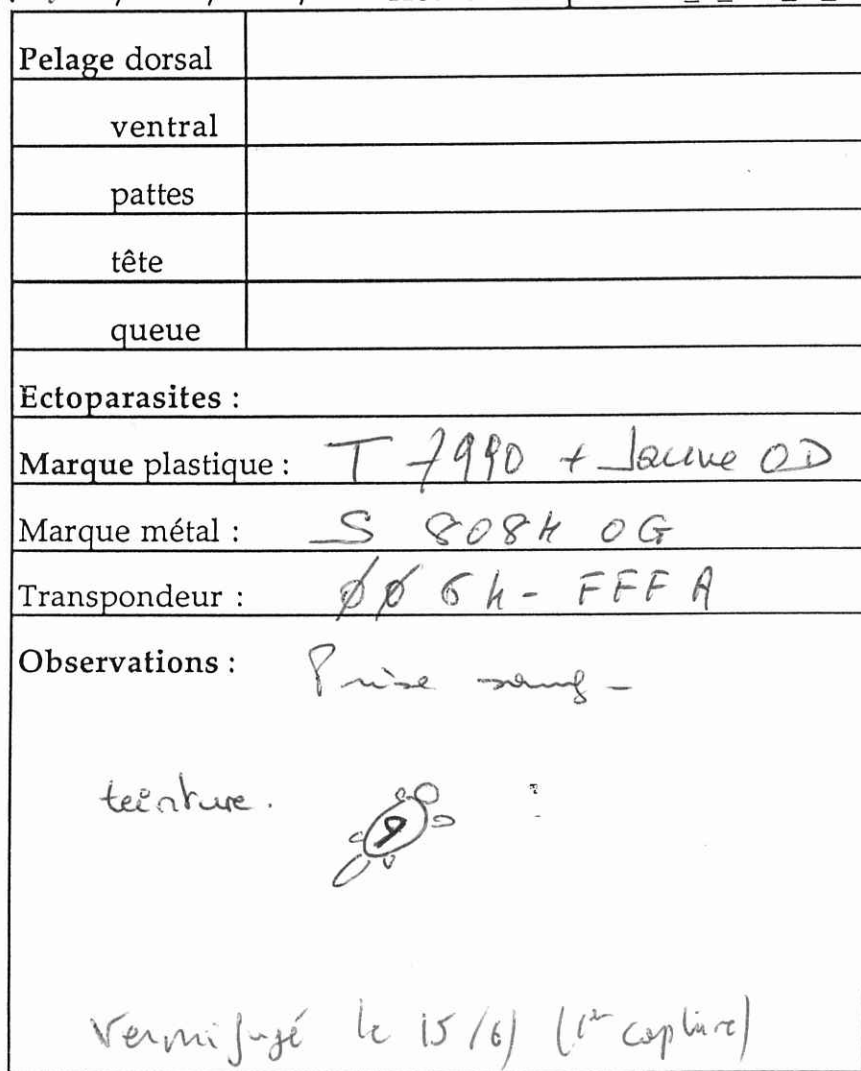 Pelage dorsal
ventral
pattes
tête
queue
Ectoparasites :
Marque plastique : T 7990 + Jaune OD
Marque métal : S 8084 OG
Transpondeur : ØØ 64 - FFFA
Observations : Prise sang -
teinture.
9
Vermifugé le 15/6) (1er capture)